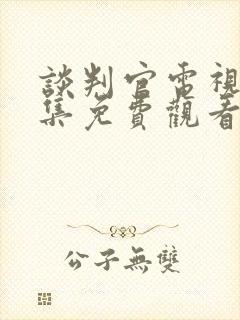 談判官電視
集免費觀看
公子無雙